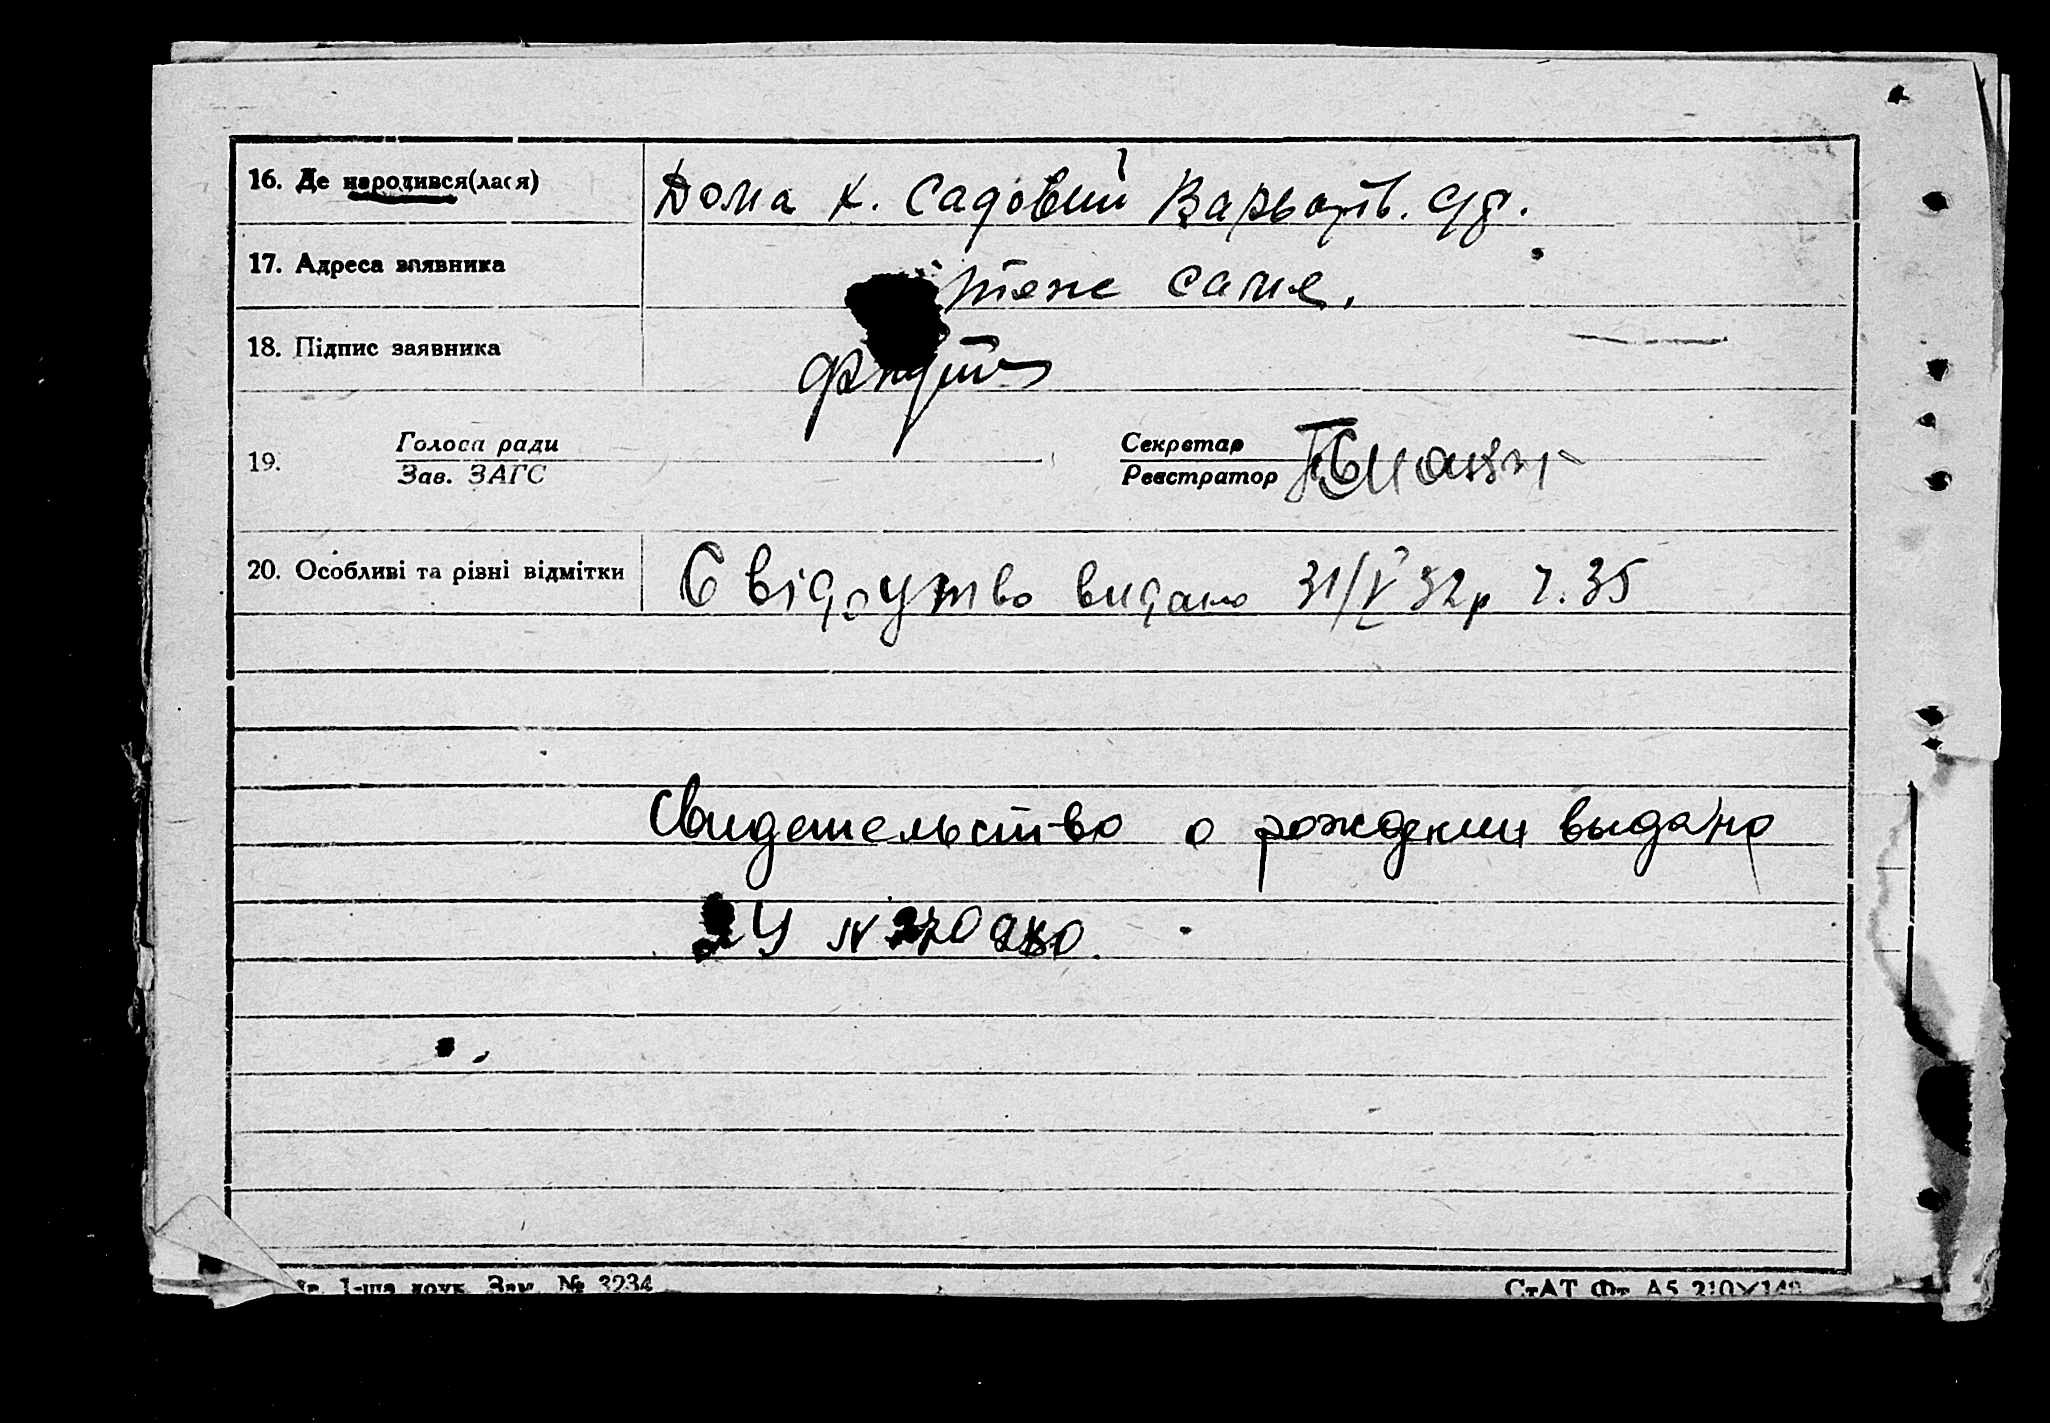 16. Де народився(лася) Дома х. Садовий с/р.
17. Адреса заявника теже саме.
18. Підпис заявника
Голоса ради Секретар
19.
Зав. ЗАГС Реєстратор
20. Особливі та рівні відмітки Свідоутво видано 31/V 32р ч. 35
Свидетельство о рождении выдано
N
1-ша друк. Зам. № 3234
СтАТ Фт А5 210×148